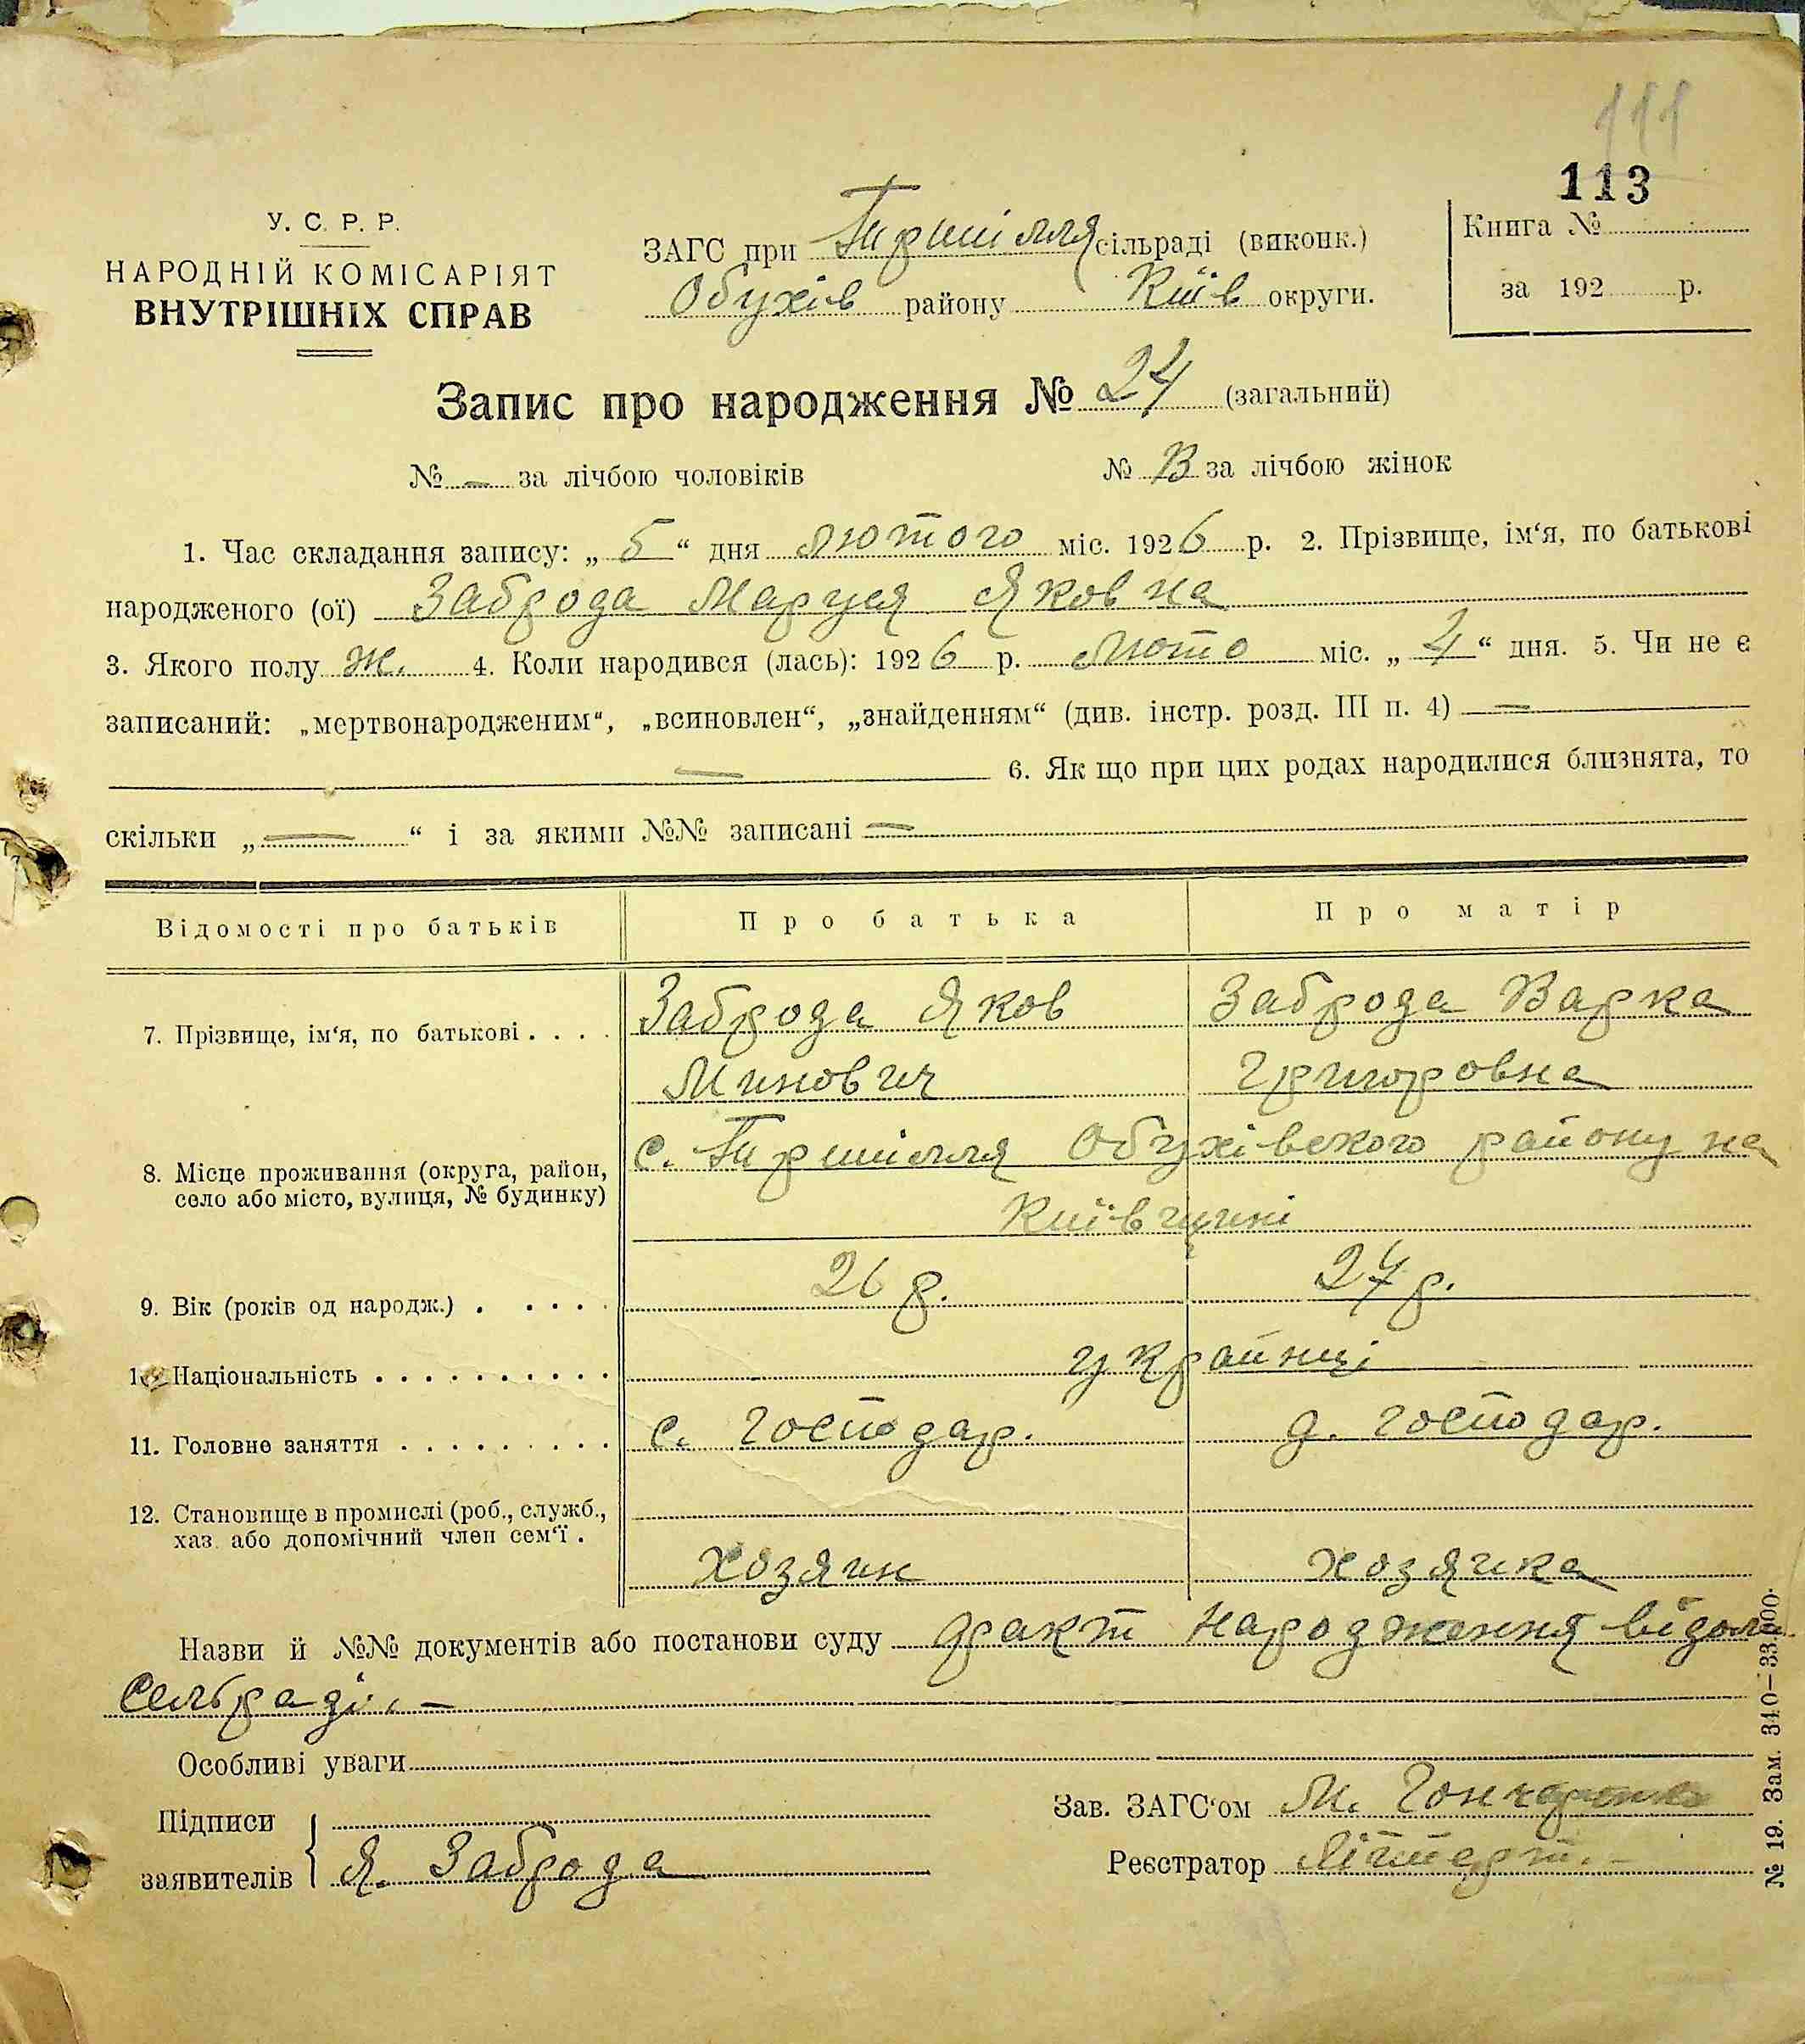 111
113
У. С. Р. Р.
НАРОДНІЙ КОМІСАРІЯТ
ВНУТРІШНІХ СПРАВ
ЗАГС при сільраді (виконк.)
Обухів району Київ округи.
Книга №
за 192 р.
Запис про народження № 24 (загальний)
№ — за лічбою чоловіків
№ за лічбою жінок
1. Час складання запису: „ 5 “ дня лютого міс. 1926 р. 2. Прізвище, ім‘я, по батькові
народженого (ої) Заброда Маруся Яковна
3. Якого полу ж. 4. Коли народився (лась): 1926 р. люто міс. „ 4 “ дня. 5. Чи не є
записаний: „мертвонародженим“, „всиновлен“, „знайденням“ (див. інстр. розд. III п. 4) —
— 6. Як що при цих родах народилися близнята, то
скільки „ — “ і за якими №№ записані —
Відомості про батьків Про батька Про матір
7. Прізвище, ім‘я, по батькові . . . . Заброда Яков Заброда Варка
Минович Григоровна
8. Місце проживання (округа, район, с. Обухівского району на
село або місто, вулиця, № будинку) Київщині
9. Вік (років од народж.) . . . . . 26 р. 24 р.
10. Національність . . . . . . . . . . українці
11. Головне заняття . . . . . . . . . с. господар. д. господар.
12. Становище в промислі (роб., служб.,
хаз. або допомічний член сем‘ї . хозяин хозяика
Назви й №№ документів або постанови суду факт народження відом
сельраді. —
Особливі уваги
Підписи
заявителів Я. Заброда
Зав. ЗАГС‘ом М. Гончаренко
Реєстратор
№ 19. Зам. 340—33.000.